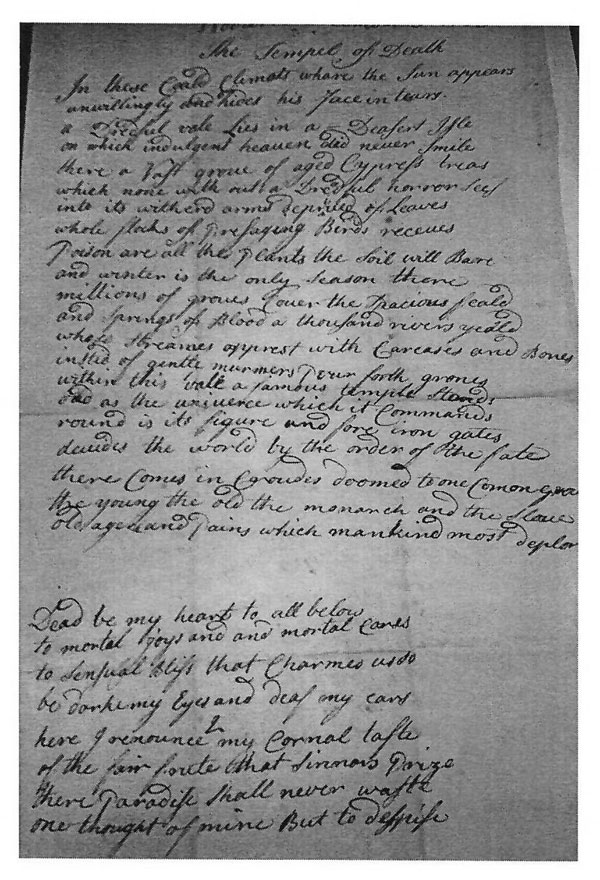 The Tempel of Death
In these Cald Climats whare the Sun appears
unwillingly and hides his Face in tears.
a Dredful vale Lies in a Deasert Isle
on which indulgent heaven did never Smile
there a Vast grove of aged Cypress treas
which none with out a Dredful horror sees
into its witherd arms deprived of Leaves
whole flocks of Presaging Birds receves
Poison are all the Plants the Soil will Bare
and winter is the only Season there
millions of groves Cover the Spacious feald
and Springs of Blood a thousand rivers yeald
whose Streames opprest with Carcases and Bones
insted of gentle murmers Pour forth grones
within this vale a famous temple Stands
old as the univerce which it Commands
round is its figure and fore iron gates
decides the world by the order of the fate
there Comes in Croudes doomed to one Comon
the young the old the monarch and the Slave
old age and Pains which mankind most deplor
Dead be my heart to all below
to mortal Joys and and mortal Cares
to Sensual Bliss that Charmes us so
be dark my Eyes and deaf my ears
here I renounce my Cornal taste
of the fair frute that Sinnors Prize
there Paradise Shall never waste
one thought of mine But to despise